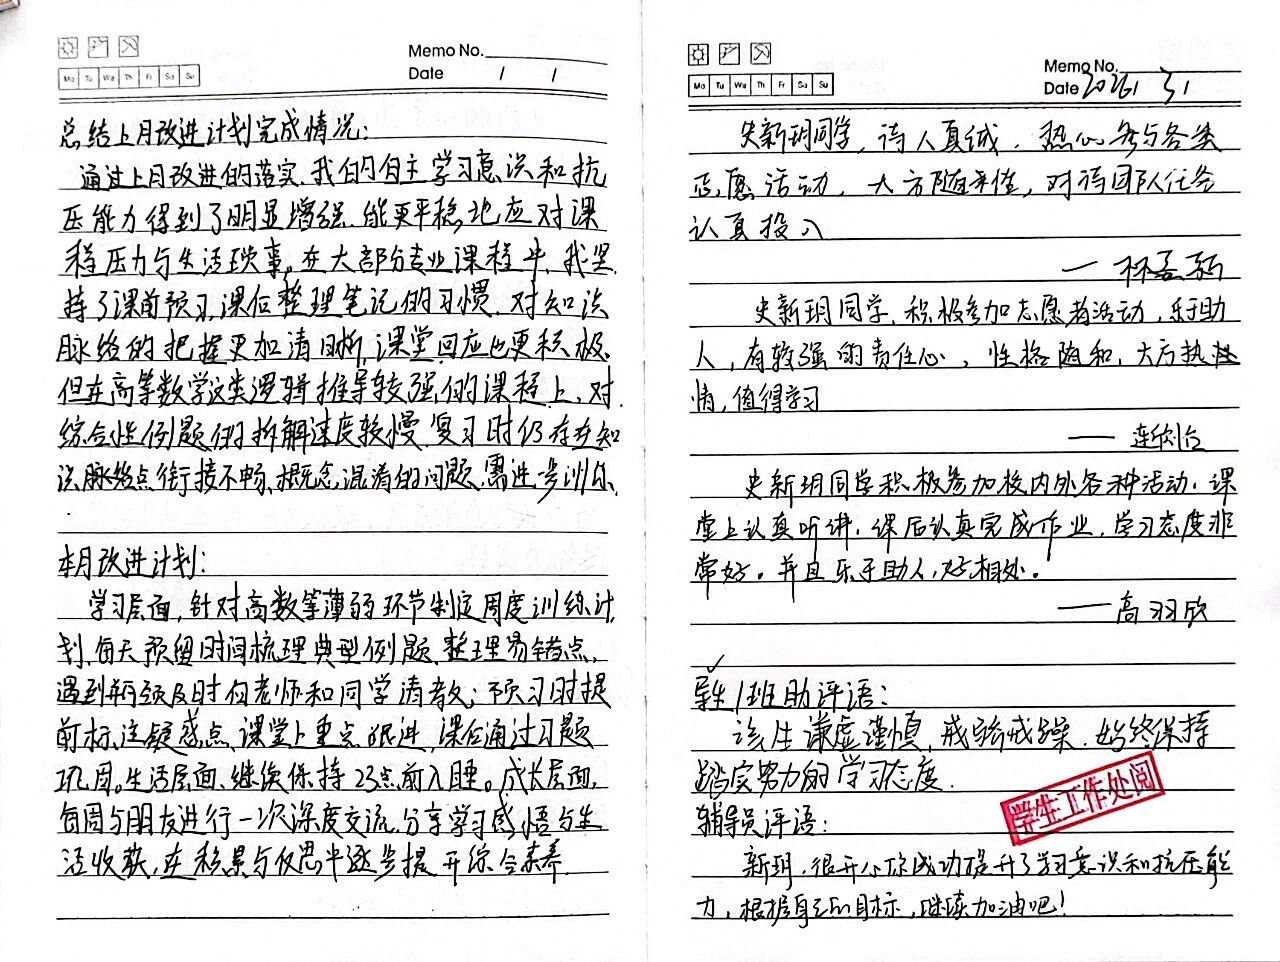 Memo No.
Mo Tu We Th Fr Sa Su
Date / /
总结上月改进计划完成情况:
通过上月改进的落实,我的自主学习意识和抗
压能力得到了明显增强,能更平稳地应对课
程压力与生活琐事。在大部分专业课程中,我坚
持了课前预习,课后整理笔记的习惯,对知识
脉络的把握更加清晰,课堂回应也更积极。
但在高等数学这类逻辑推导较强的课程上,对
综合性例题的拆解速度较慢,复习时仍存在知
识脉络点衔接不畅、概念混淆的问题,需进一步训练.
本月改进计划:
学习层面,针对高数等薄弱环节制定周度训练计
划,每天预留时间梳理典型例题,整理易错点,
遇到瓶颈及时向老师和同学请教;预习时提
前标注疑惑点,课堂上重点跟进,课后通过习题
巩固。生活层面,继续保持23点前入睡。成长层面,
每周与朋友进行一次深度交流,分享学习感悟与生
活收获,在积累与反思中逐步提升综合素养.
Memo No.
Mo Tu We Th Fr Sa Su
Date 2026 / 3 /
史新玥同学,待人真诚,热心参与各类
志愿活动,大方随和,对待团队任务
认真投入
史新玥同学,积极参加志愿者活动,乐于助
人,有较强的责任心,性格随和,大方热
情,值得学习
史新玥同学积极参加校内外各种活动,课
堂上认真听讲,课后认真完成作业,学习态度非
常好。并且乐于助人,好相处。
——高羽欣
导生/班助评语:
该生谦虚谨慎,戒骄戒躁,始终保持
踏实努力的学习态度.
学生工作处阅
辅导员评语:
新玥,很开心你成功提升了学习意识和抗压能
力,根据自己的目标,继续加油吧!